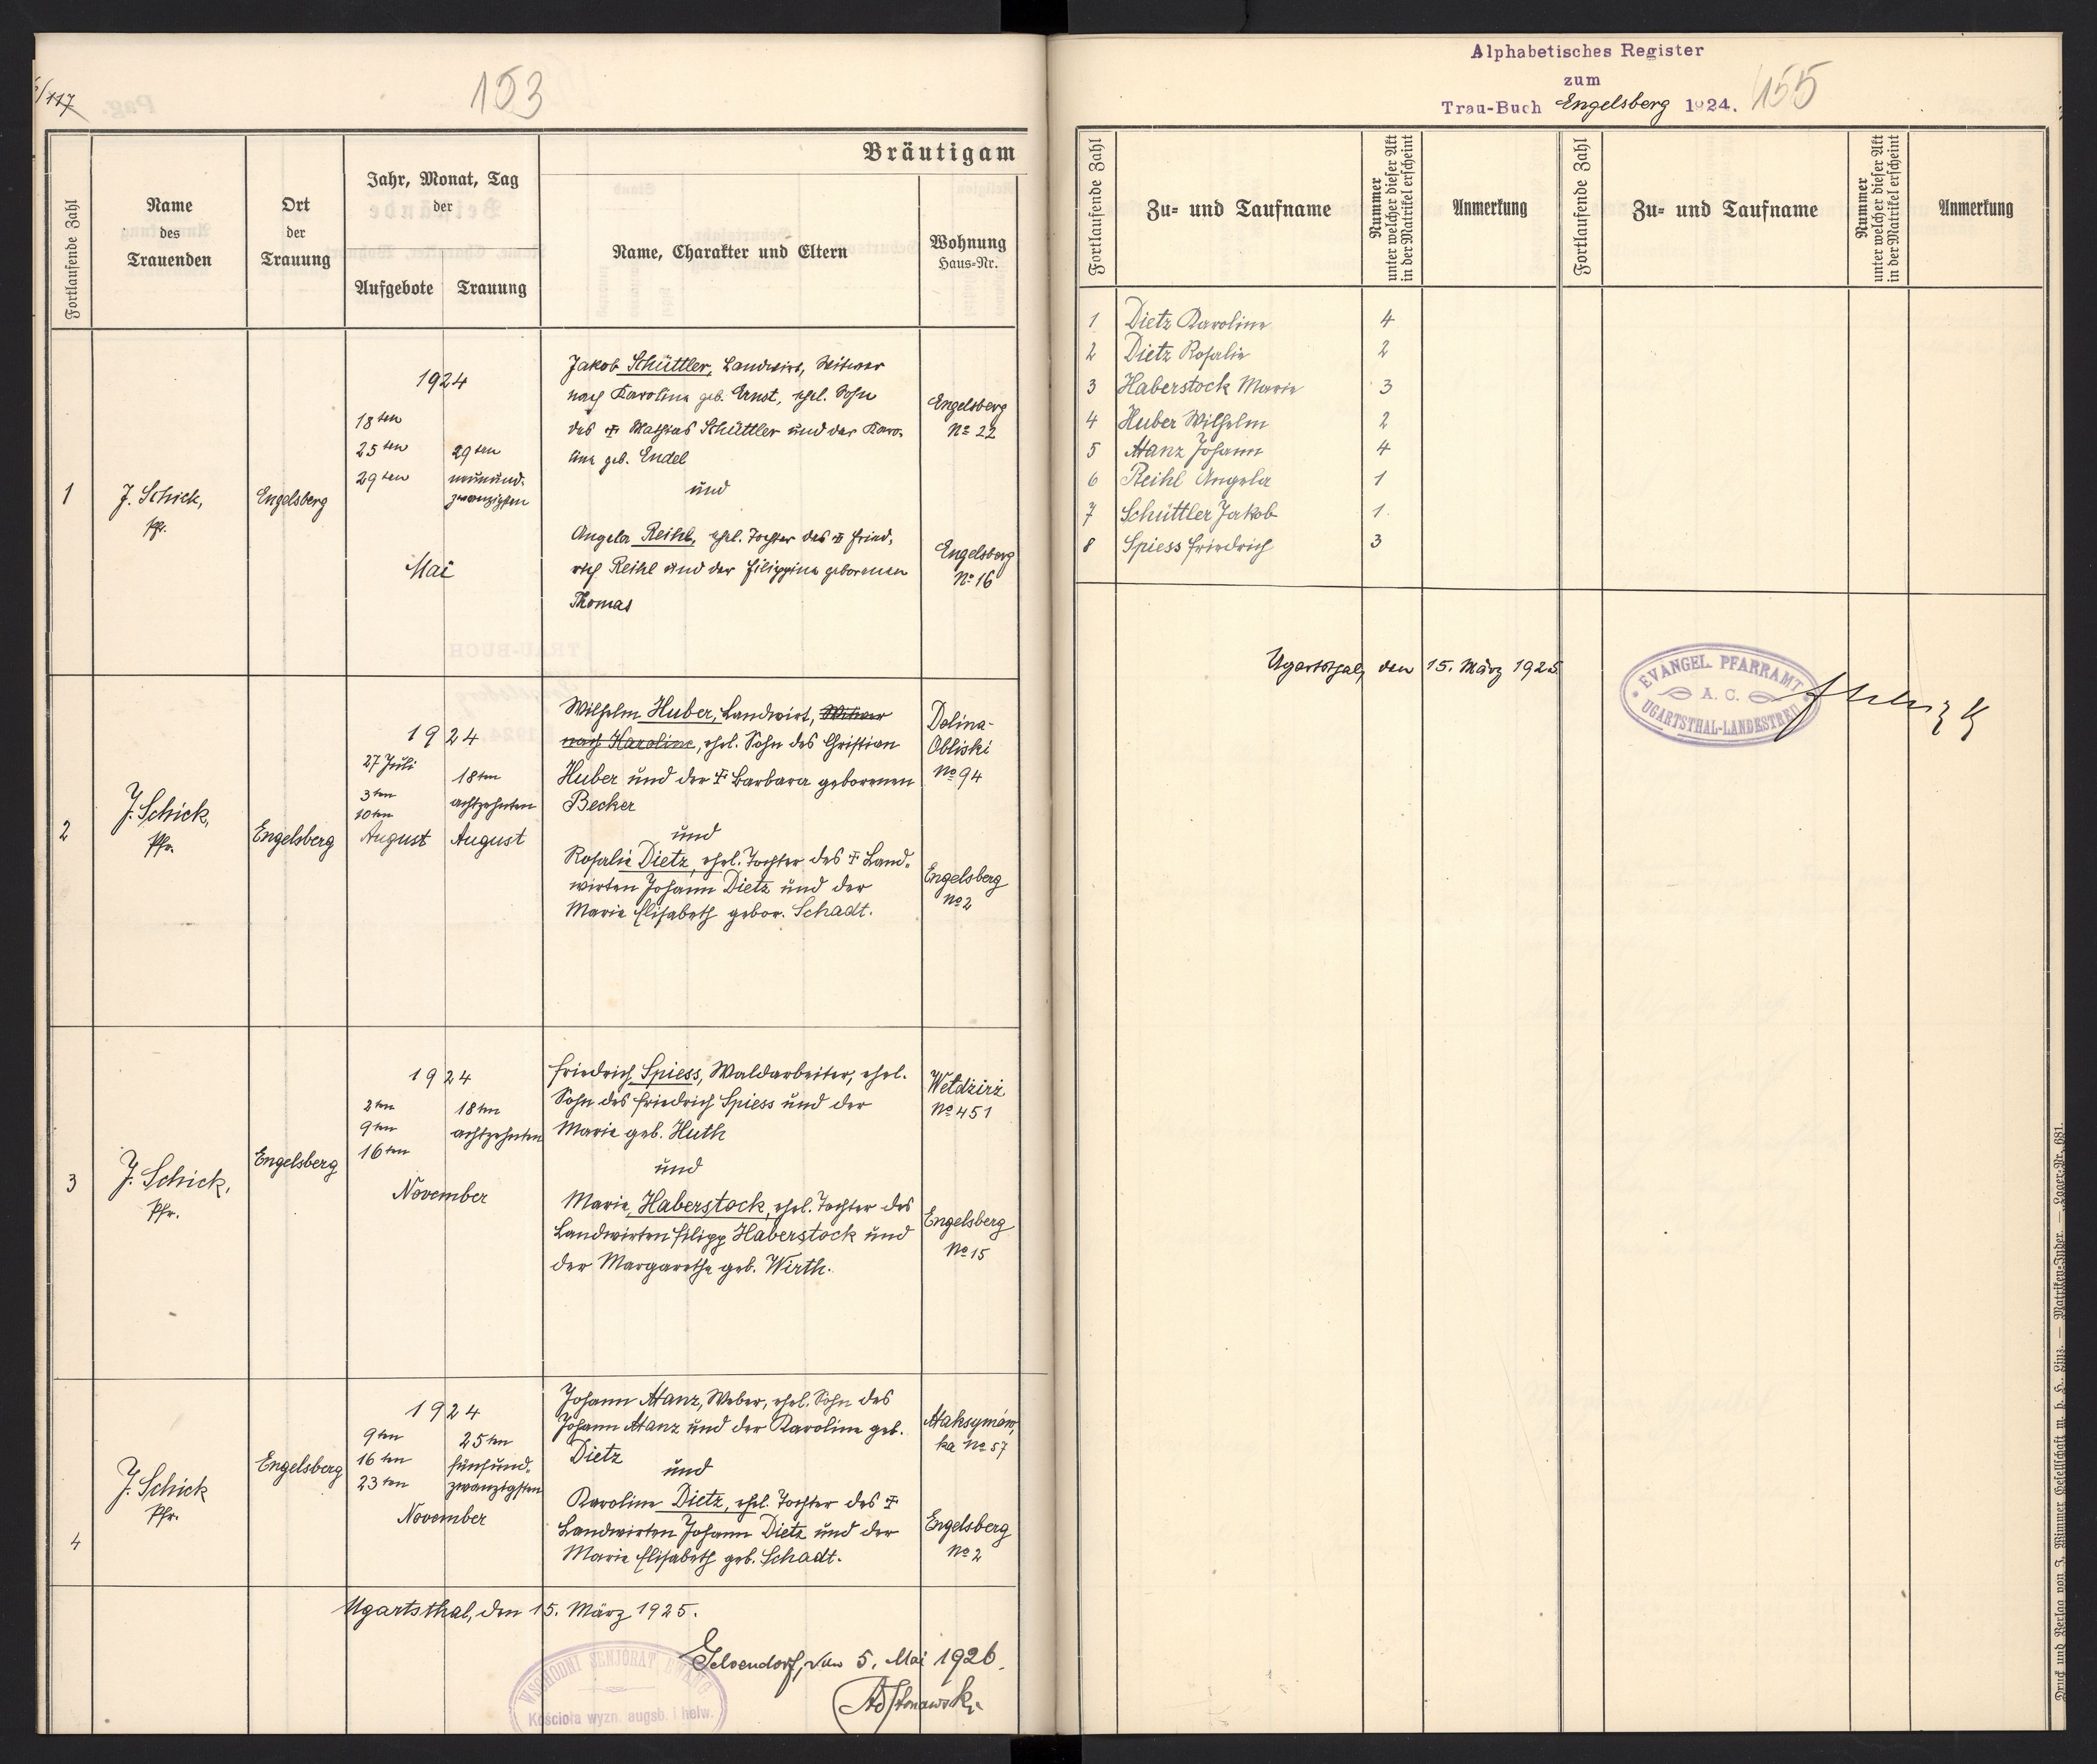 117
153
Bräutigam
Fortlaufende Zahl
Name
des
Trauenden
Ort
der
Trauung
Jahr, Monat, Tag
der
Aufgebote
Trauung
Name, Charakter und Eltern
Wohnung
Haus-Nr.
1
J. Schick,
Pfr.
Engelsberg
1924
18ten
25ten
29ten
29ten
neunund-
zwanzigsten
Mai
Jakob Schüttler, Landwirt, Witwer
nach Karolina geb. Ernst, ehel. Sohn
des ✝ Mathias Schüttler und der Karo-
lina geb. Endel
und
Angela Reihl, ehel. Tochter des ✝ Fried-
rich Reihl und der Filippine geborenen
Thomas
Engelsberg
No 22
Engelsberg
No 16
2
J. Schick,
Pfr.
Engelsberg
1924
27 Juli
3ten
10ten
August
18ten
achtzehnten
August
Wilhelm Huber, Landwirt, Witwer
nach Karoline, ehel. Sohn des Christian
Huber und der ✝ Barbara geborenen
Becker
und
Rosalie Dietz, ehel. Tochter des ✝ Land-
wirten Johann Dietz und der
Marie Elisabeth gebor. Schadt.
Dolina-
Obliski
No 94
Engelsberg
No 2
3
J. Schick,
Pfr.
Engelsberg
1924
2ten
9ten
16ten
18ten
achtzehnten
November
Friedrich Spiess, Waldarbeiter, ehel.
Sohn des Friedrich Spiess und der
Marie geb. Huth
und
Marie Haberstock, ehel. Tochter des
Landwirten Filipp Haberstock und
der Margarethe geb. Wirth.
Wełdzirż
No 451
Engelsberg
No 15
4
J. Schick
Pfr.
Engelsberg
1924
9ten
16ten
23ten
25ten
fünfund-
zwanzigsten
November
Johann Manz, Weber, ehel. Sohn des
Johann Manz und der Karoline geb.
Dietz
und
Karoline Dietz, ehel. Tochter des ✝
Landwirten Johann Dietz und der
Marie Elisabeth geb. Schadt.
Maksymów,
ka No 57
Engelsberg
No 2
Ugartsthal, den 15. März 1925.
Gelsendorf, den 5. Mai 1926.
WSCHODNI SENJORAT EWANG
Kościoła wyzn. augsb. i helw.
Alphabetisches Register
zum
Trau-Buch Engelsberg 1924.
155
Fortlaufende Zahl
Zu- und Taufname
Nummer
unter welcher dieser Akt
in der Matrikel erscheint
Anmerkung
Fortlaufende Zahl
Zu- und Taufname
Nummer
unter welcher dieser Akt
in der Matrikel erscheint
Anmerkung
1 Dietz Karoline 4
2 Dietz Rosalie 2
3 Haberstock Marie 3
4 Huber Wilhelm 2
5 Manz Johann 4
6 Reihl Angela 1
7 Schüttler Jakob 1.
8 Spiess Friedrich 3
Ugartsthal, den 15. März 1925
EVANGEL. PFARRAMT
A. C.
UGARTSTHAL-LANDESTREU
Druck und Verlag von J. Wimmer Gesellschaft m. b. H., Linz. — Matriken-Index. — Lager-Nr. 681.